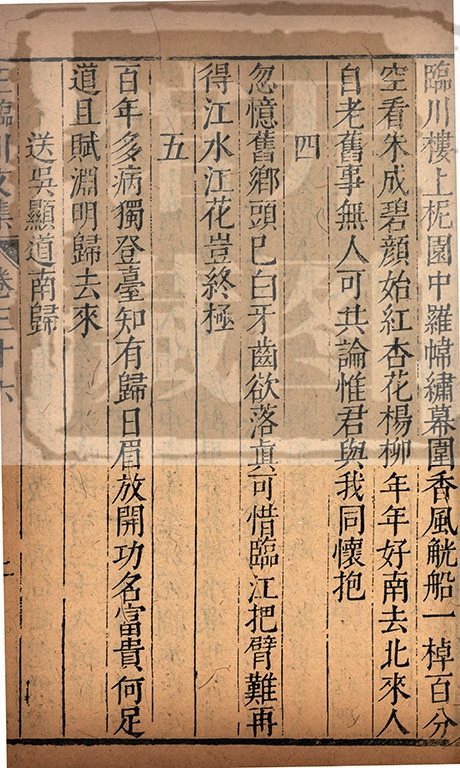 臨川樓上柅園中羅幃繡幕圍香風觥船一棹百分
空看朱成碧顏始紅杏花楊柳年年好南去北來人
自老舊事無人可共論惟君與我同懷抱
四
忽憶舊鄉頭已白牙齒欲落真可惜臨江把臂難再
得江水江花豈終極
五
百年多病獨登臺知有歸日眉放開功名富貴何足
道且賦淵明歸去來
送吳顯道南歸
王臨川文集 卷三十六